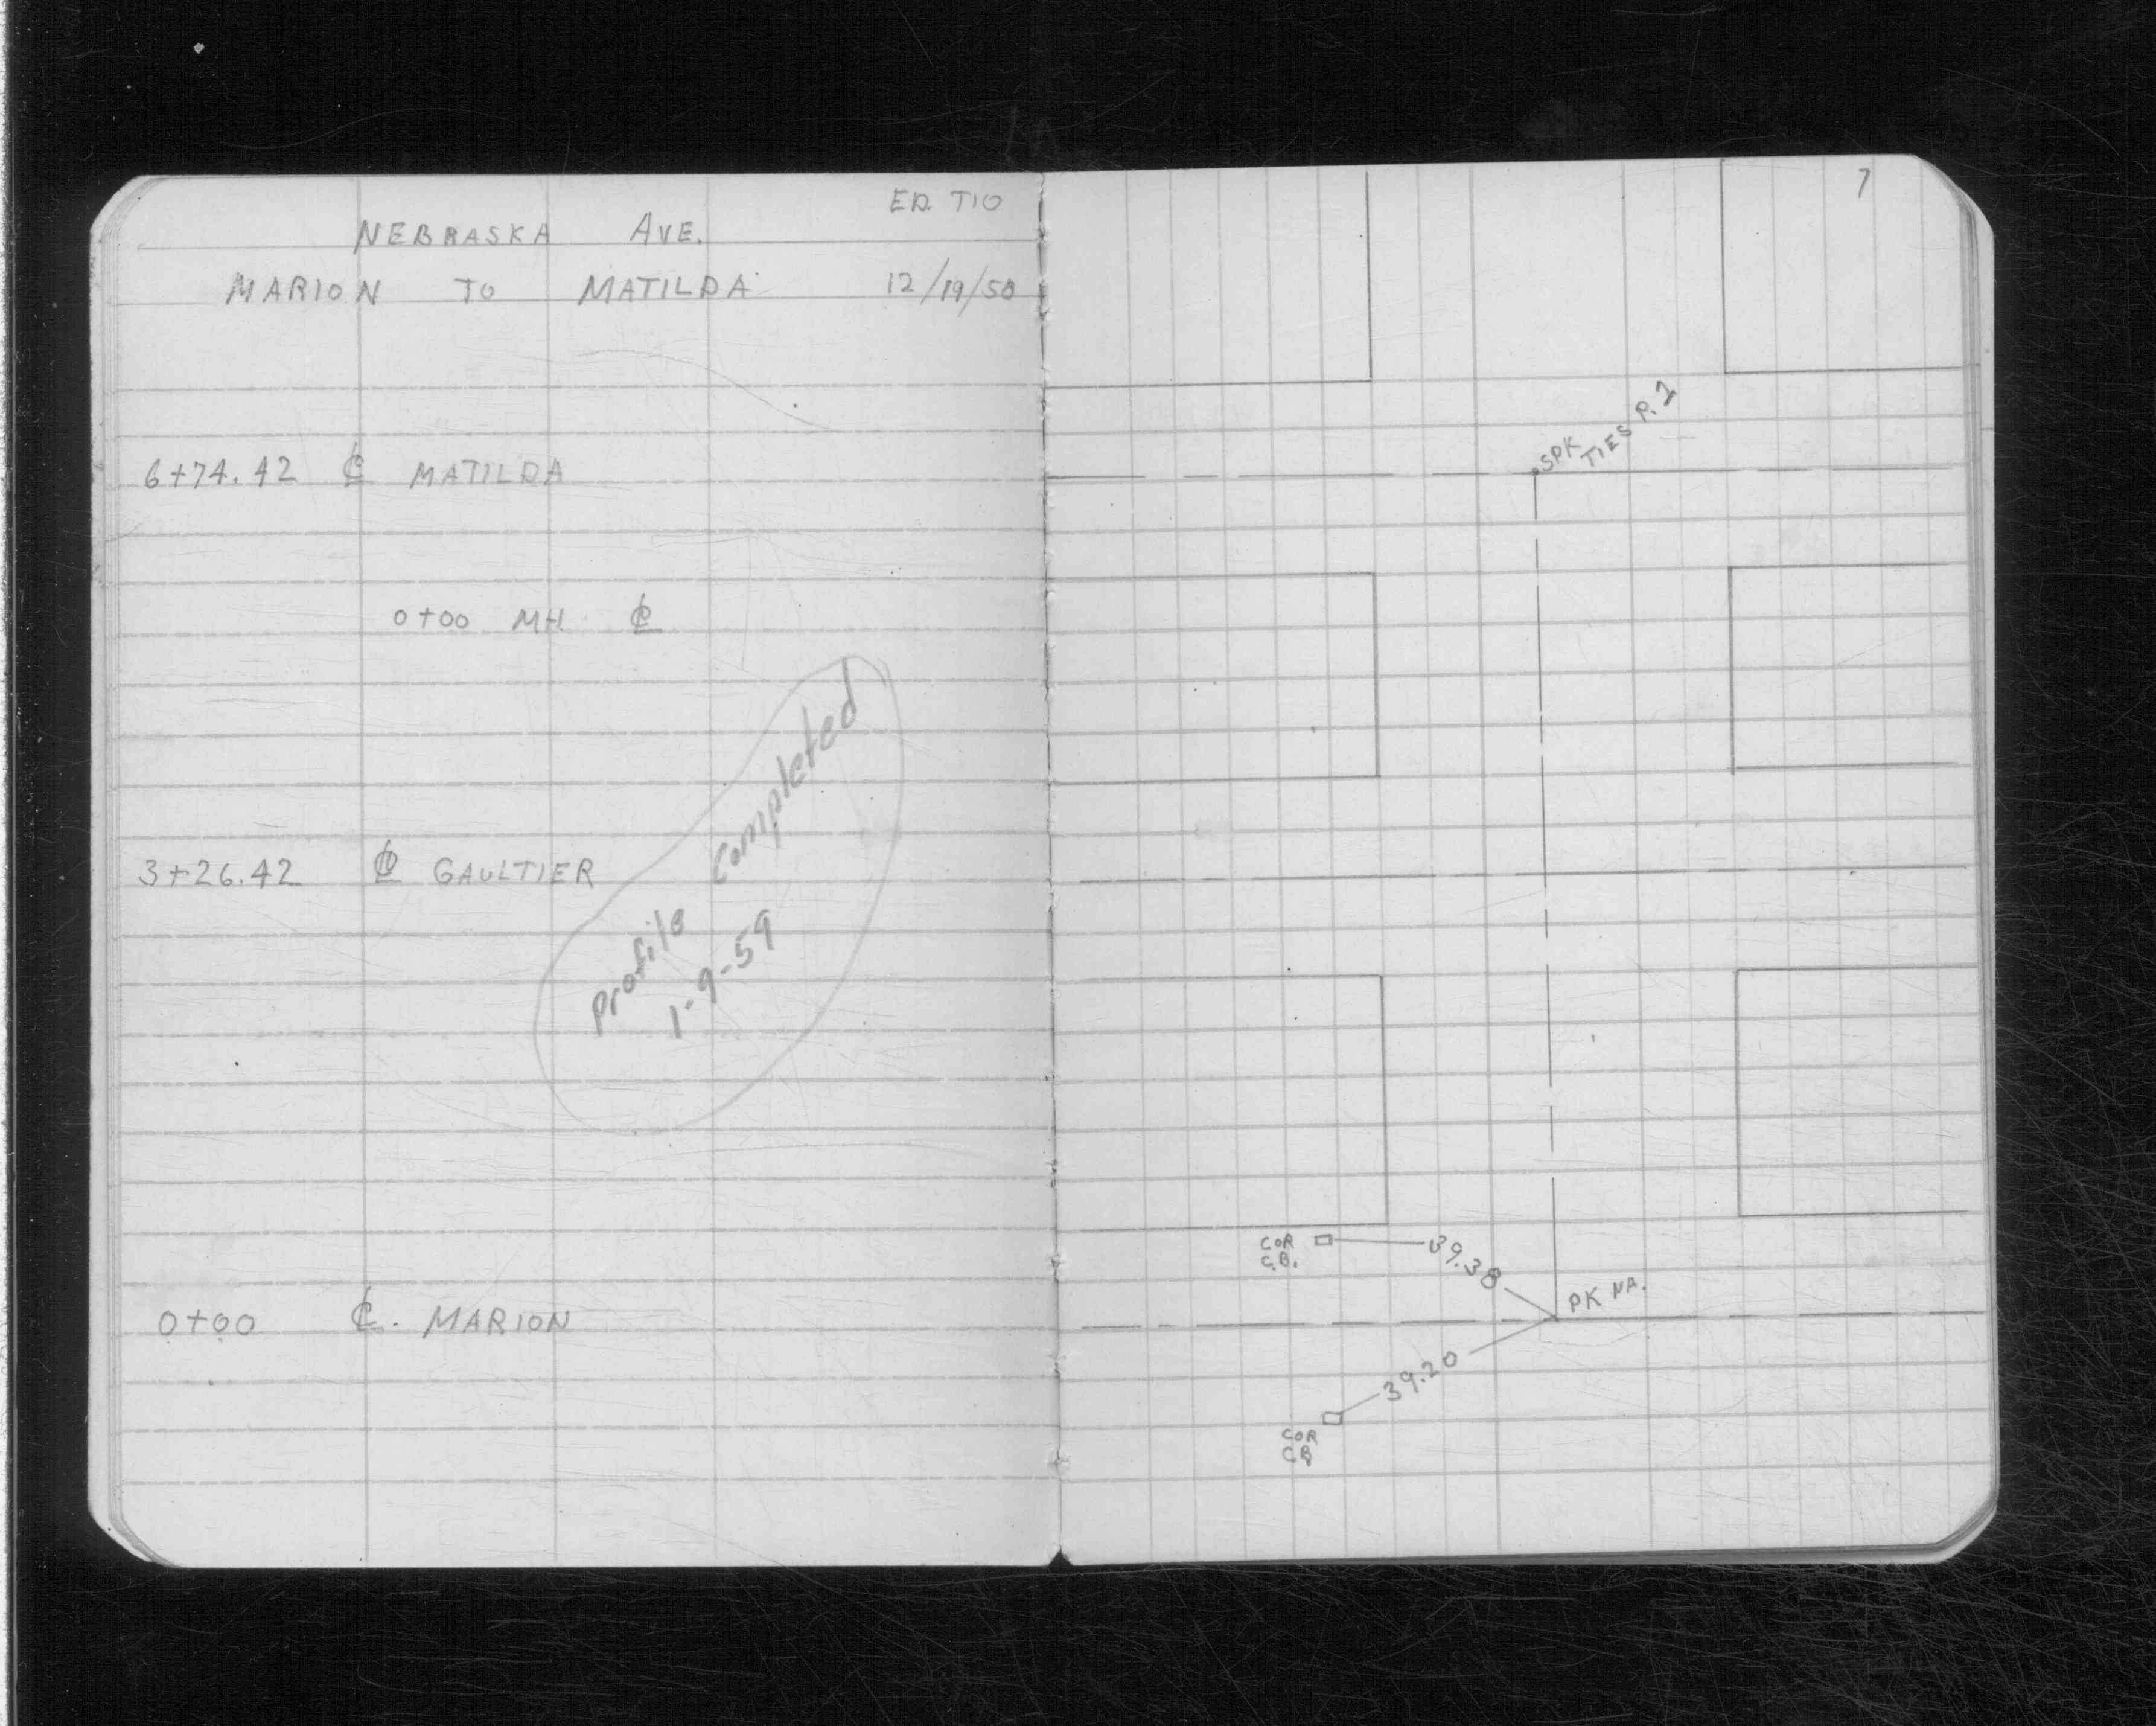 ED. TIO
NEBRASKA AVE.
MARION TO MATILDA 12/19/58
6+74.42 ℄ MATILDA
0+00 MH ℄
3+26.42 ℄ GAULTIER
Profile Completed
1-9-59
0+00 ℄. MARION
7
SPK
TIES P. 2
COR
C.B.
39.38
PK NA.
39.20
COR
CB